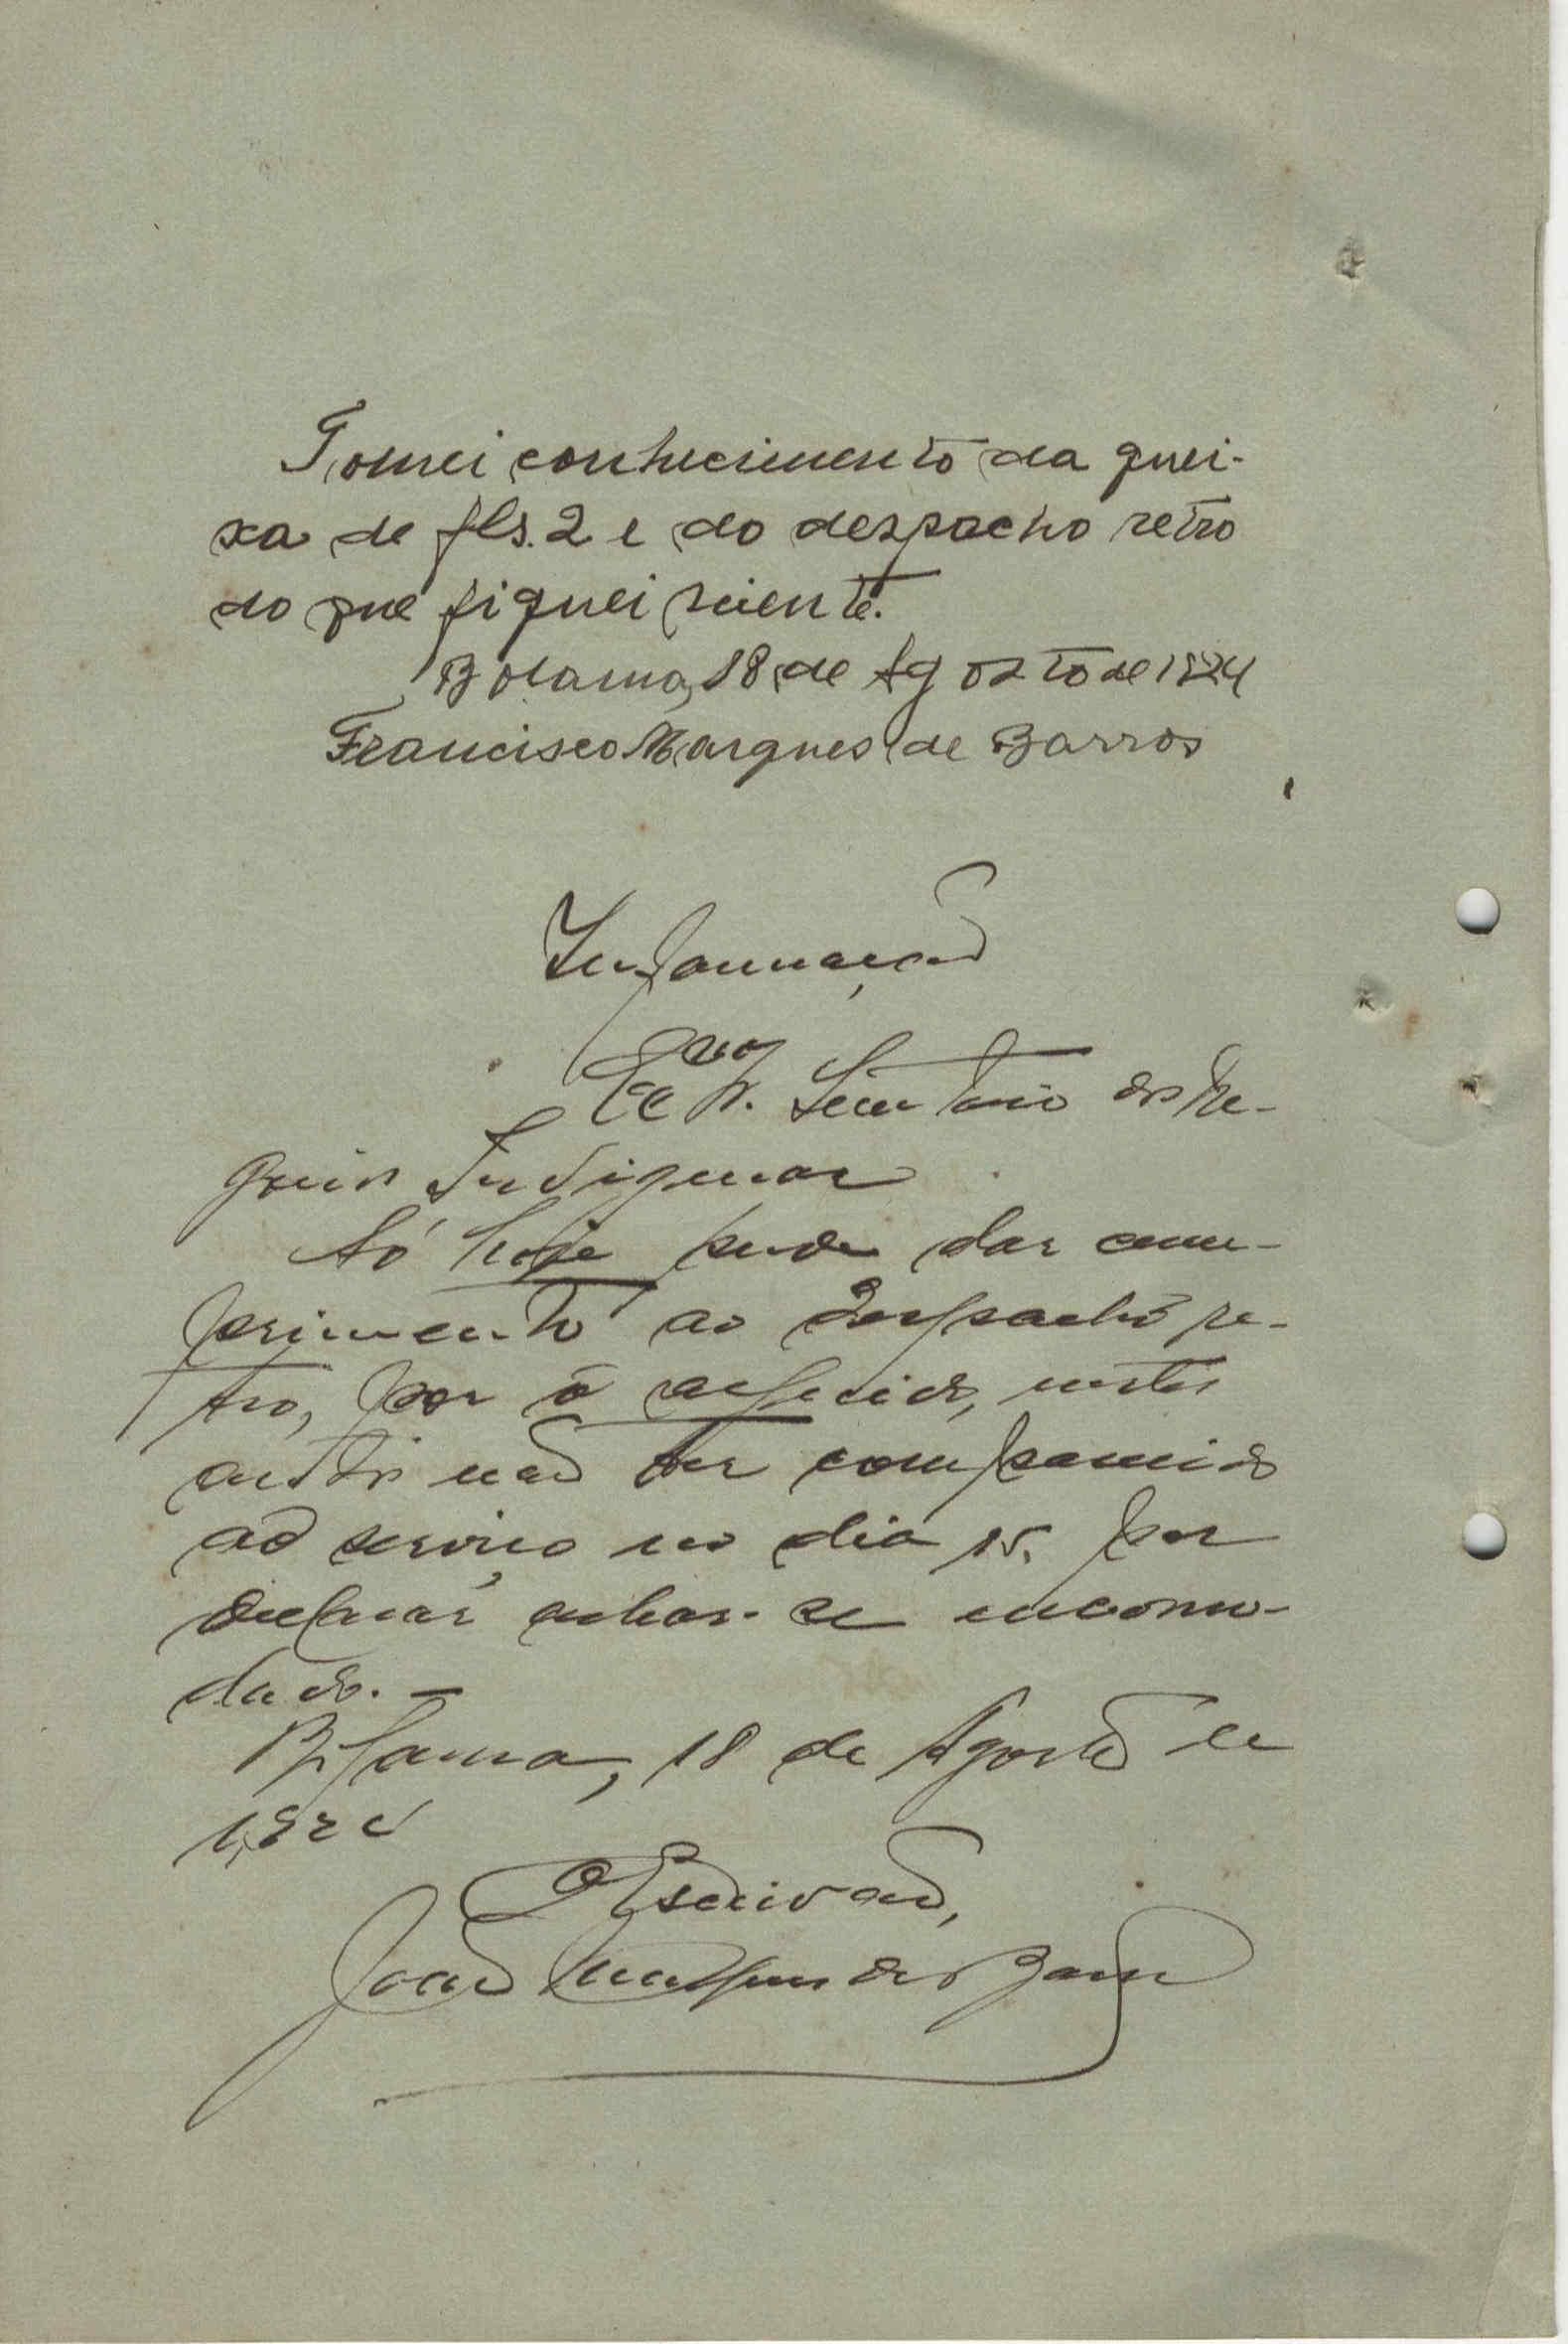 Tomei conhecimento da quei-
xa de fls. 2 e do despacho retro
do que fiquei sciente.
Bolama, 18 de Agosto de 1924
Francisco Marques de Barros
Informação
Exmo Sr. Secretario dos Ne-
gocios Indigenas
Só hoje pude dar cum-
primento ao despacho re-
tro, por o arguido, nestes
autos não ter comparecido
ao serviço no dia 15, por
declarar achar-se incomo-
dado. —
Bolama, 18 de Agosto de
1924
O Escrivão,
João